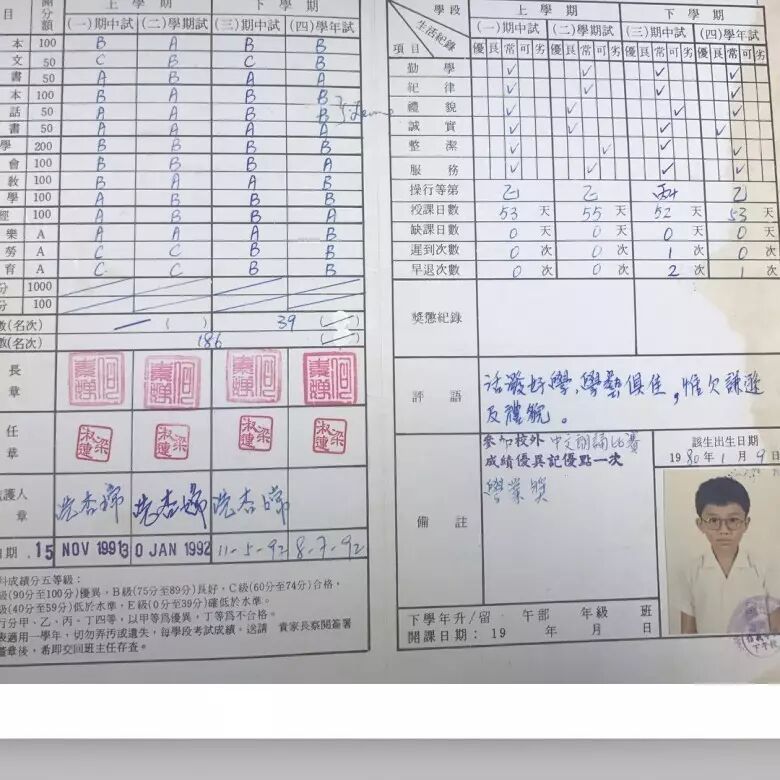 目 分額 上學期 下學期
(一)期中試 (二)學期試 (三)期中試 (四)學年試
本 100 B A B B
文 50 C B C B
書 50 B A A A
本 100 B A B B
話 50 A A B B
書 50 A A A A
學 200 B B B B
會 100 B B B A
教 100 B A A B
學 100 A B B B
經 100 A B B A
樂 A A A A B
勞 A C C B B
育 A C C B B
分 1000
分 100
數(名次) ( ) 39 ( )
數(名次) 186 ( )
長章
任章
梁淑蓮 梁淑蓮 梁淑蓮 梁淑蓮
護人章
日期 15 NOV 1991 30 JAN 1992 11-5-92 8-7-92
科成績分五等級：
級(90分至100分)優異，B級(75分至89分)良好，C級(60分至74分)合格，
級(40分至59分)低於水準，E級(0分至39分)確低於水準。
行分甲、乙、丙、丁四等，以甲等爲優異，丁等爲不合格。
表適用一學年，切勿弄汚或遺失，每學段考試成績，送請 貴家長察閱簽署
蓋章後，希即交回班主任存查。
學段 生活紀錄 項目 上學期 下學期
(一)期中試 (二)學期試 (三)期中試 (四)學年試
優 良 常 可 劣 優 良 常 可 劣 優 良 常 可 劣 優 良 常 可 劣
勤學 ✓ ✓ ✓ ✓
紀律 ✓ ✓ ✓ ✓
禮貌 ✓ ✓ ✓ ✓
誠實 ✓ ✓ ✓ ✓
整潔 ✓ ✓ ✓ ✓
服務 ✓ ✓ ✓ ✓
操行等第 乙 乙 乙
授課日數 53 天 55 天 52 天 53 天
缺課日數 0 天 0 天 0 天 0 天
遲到次數 0 次 0 次 1 次 0 次
早退次數 0 次 0 次 2 次 1 次
獎懲紀錄
評語 活潑好學，學藝俱佳，惟欠謙遜
及禮貌。
備註 參加校外中文朗誦比賽
成績優異記優點一次
學業獎
該生出生日期
1980年1月9日
下學年升/留 午部 年級 班
開課日期：19 年 月 日